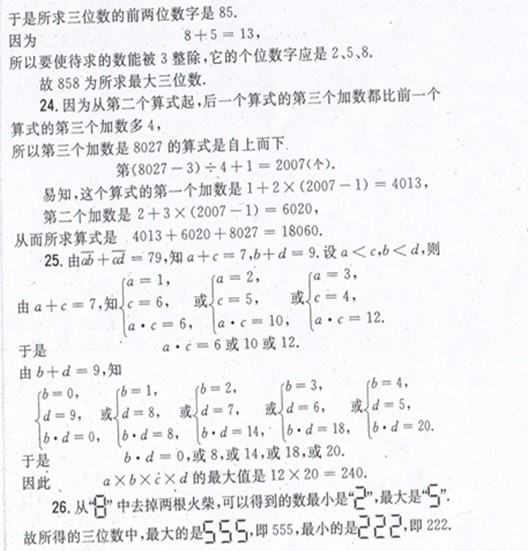 于是所求三位数的前两位数字是 85.
因为 8+5=13,
所以要使待求的数能被 3 整除,它的个位数字应是 2、5、8.
故 858 为所求最大三位数.
24. 因为从第二个算式起,后一个算式的第三个加数都比前一个
算式的第三个加数多 4,
所以第三个加数是 8027 的算式是自上而下
第(8027-3)÷4+1=2007(个).
易知,这个算式的第一个加数是 1+2×(2007-1)=4013,
第二个加数是 2+3×(2007-1)=6020,
从而所求算式是 4013+6020+8027=18060.
25. 由a̅b̅+c̅d̅=79,知 a+c=7,b+d=9.设 a<c,b<d,则
由 a+c=7,知{a=1, c=6, a·c=6, 或{a=2, c=5, a·c=10, 或{a=3, c=4, a·c=12.
于是 a·c=6 或 10 或 12.
由 b+d=9,知
{b=0, d=9, b·d=0, 或{b=1, d=8, b·d=8, 或{b=2, d=7, b·d=14, 或{b=3, d=6, b·d=18, 或{b=4, d=5, b·d=20.
于是 b·d=0,或 8,或 14,或 18,或 20.
因此 a×b×c×d 的最大值是 12×20=240.
26. 从“8”中去掉两根火柴,可以得到的数最小是“2”,最大是“5”.
故所得的三位数中,最大的是555,即 555,最小的是222,即 222.